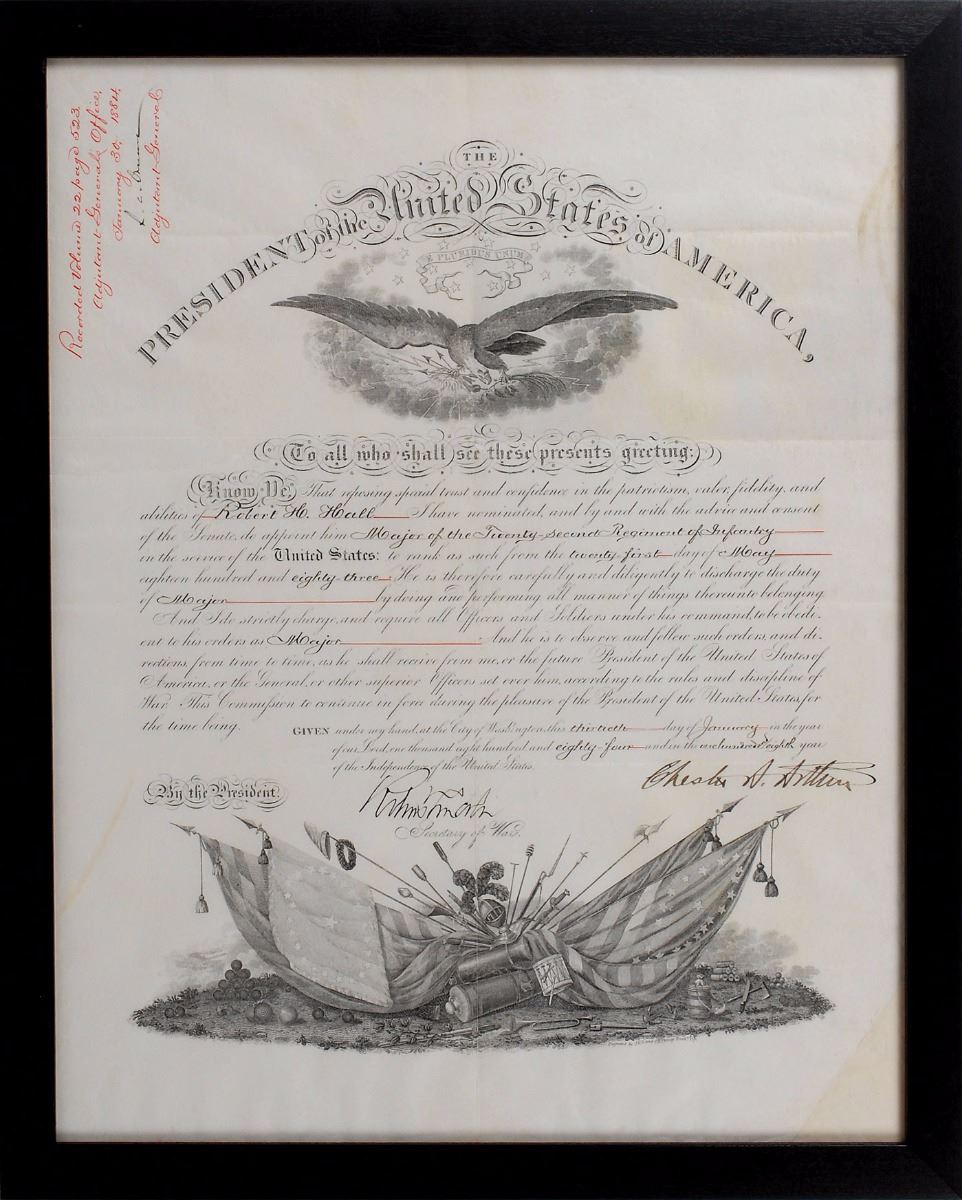 Recorded Volume 22 page 523
Adjutant General's Office,
January 30, 1884,
Adjutant General
THE
PRESIDENT of the United States of AMERICA,
E PLURIBUS UNUM
To all who shall see these presents greeting:
Know Ye, That reposing special trust and confidence in the patriotism, valor, fidelity, and
abilities of Robert H. Hall I have nominated, and by and with the advice and consent
of the Senate, do appoint him Major of the Twenty-second Regiment of Infantry
in the service of the United States: to rank as such from the twenty-first day of May
eighteen hundred and eighty-three. He is therefore carefully and diligently to discharge the duty
of Major by doing and performing all manner of things thereunto belonging
And I do strictly charge, and require all Officers and Soldiers under his command, to be obedi-
ent to his orders as Major. And he is to observe and follow such orders, and di-
rections, from time to time, as he shall receive from me, or the future President of the United States of
America, or the General, or other superior Officers set over him, according to the rules and discipline of
War. This Commission to continue in force during the pleasure of the President of the United States, for
the time being.
GIVEN under my hand, at the City of Washington, this thirtieth day of January in the year
of our Lord, one thousand eight hundred and eighty-four and in the one hundred & eighth year
of the Independence of the United States.
Chester A. Arthur
By the President.
Secretary of War.